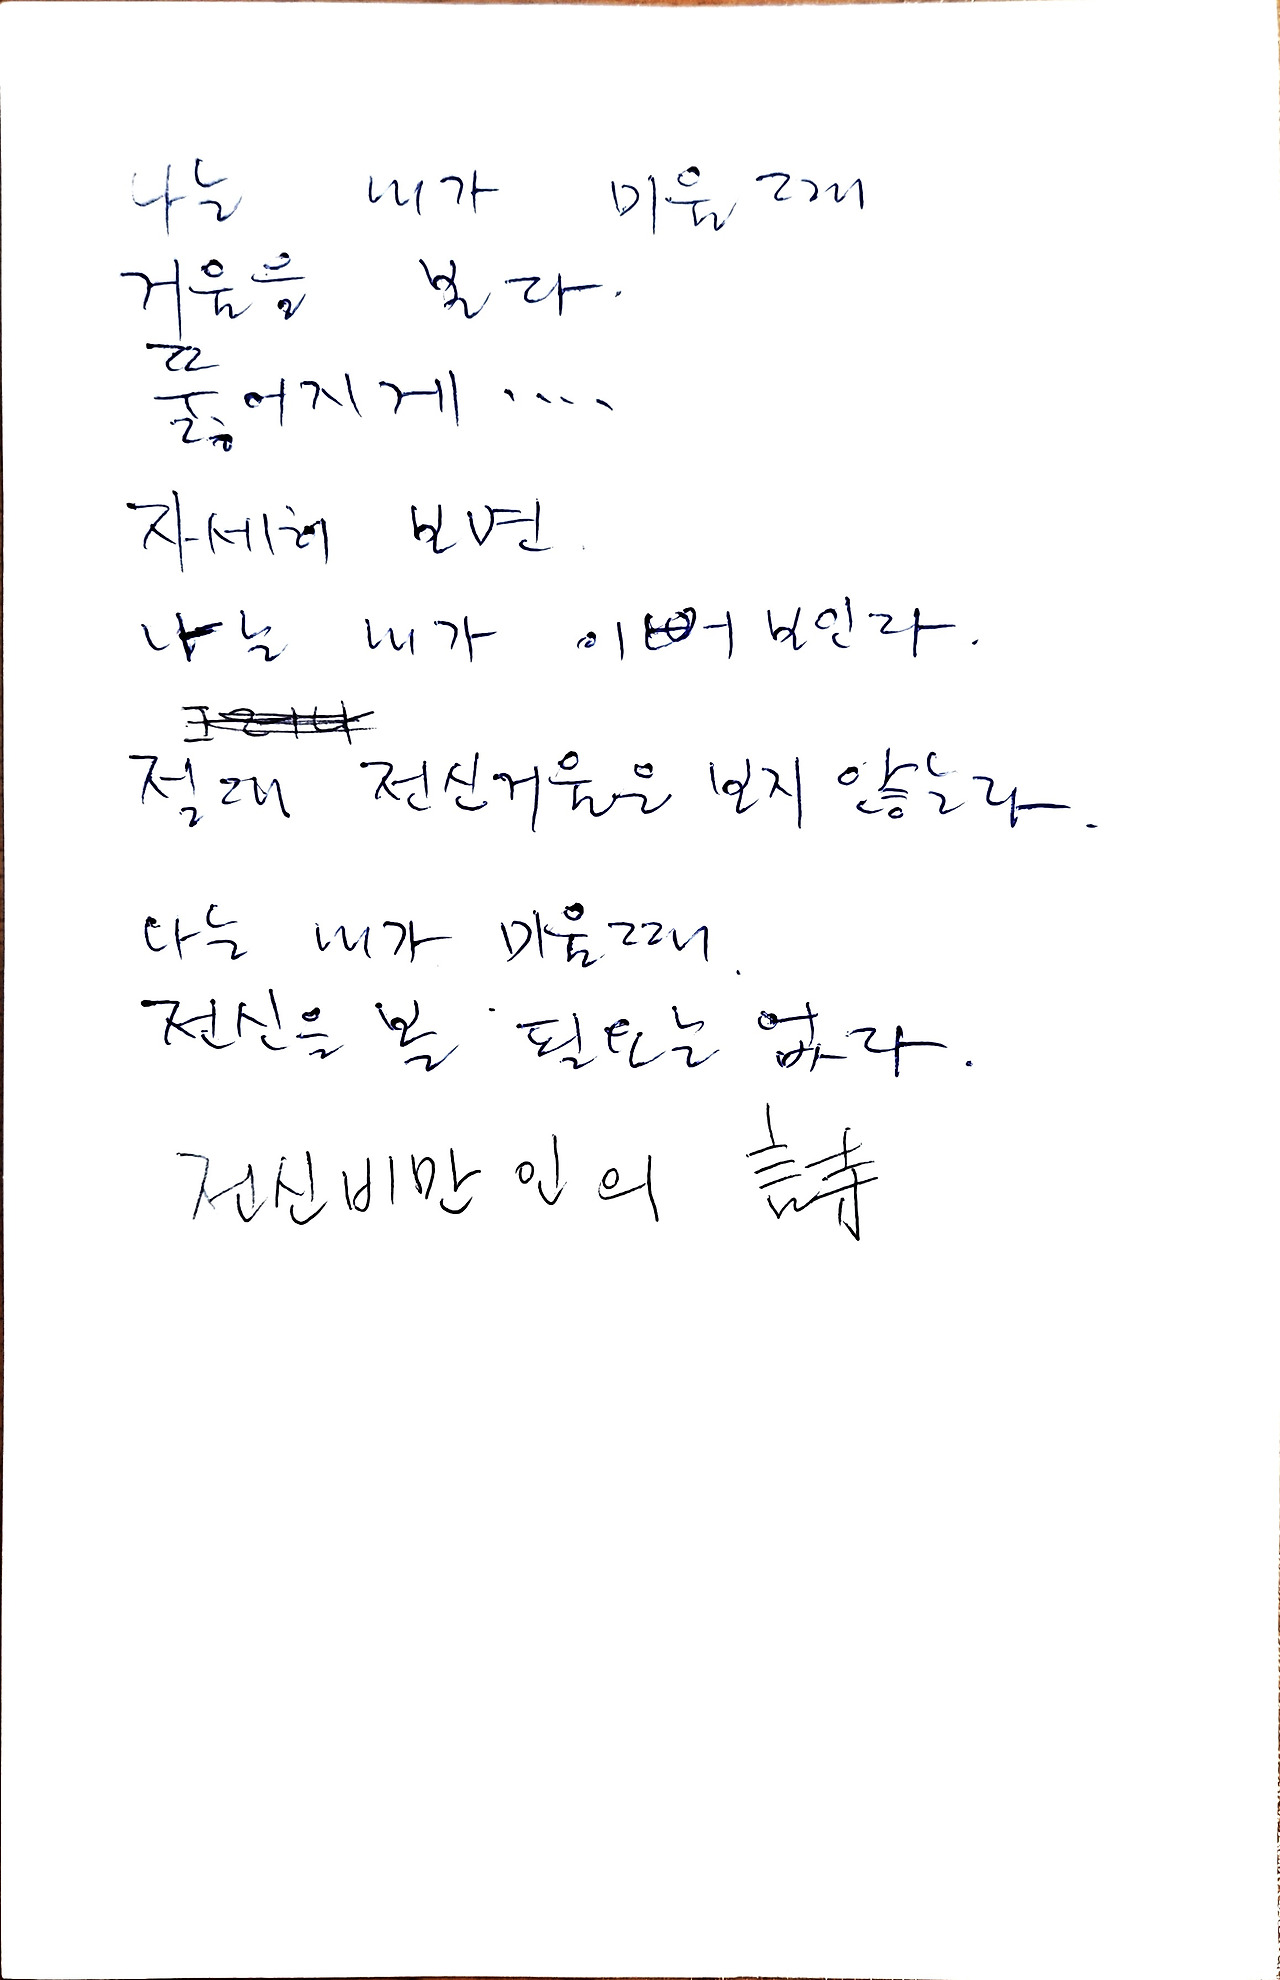 나는 내가 미울 때
거울을 본다.
뚫어지게 ....
자세히 보면
나는 내가 이뻐 보인다.
그러나
절대 전신거울은 보지 않는다.
나는 내가 미울때
전신을 볼 필요는 없다.
전신비만인의 詩